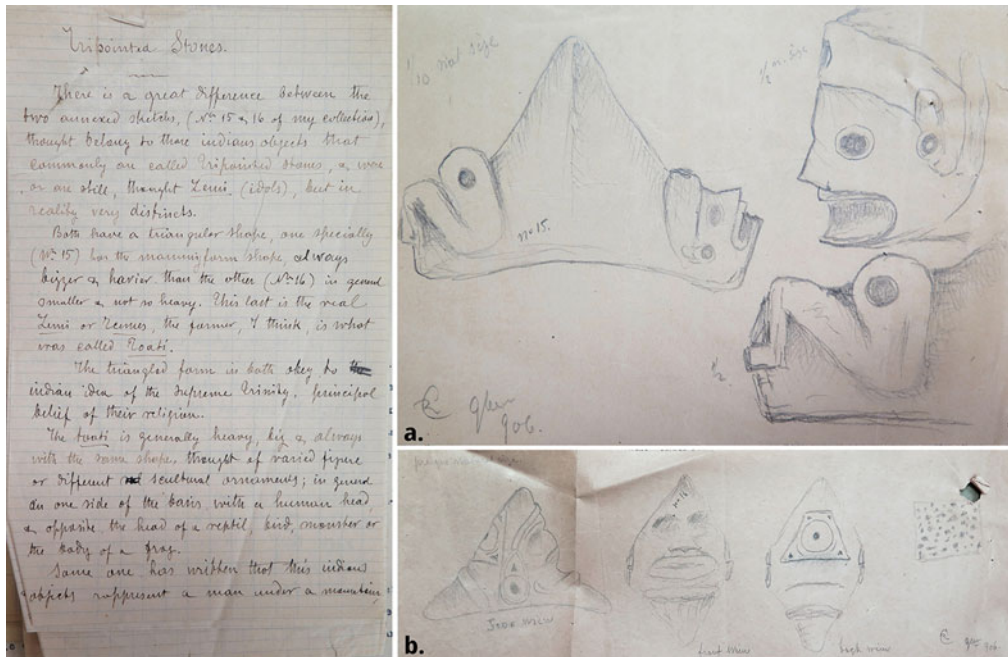 Tripointed Stones.
There is a great difference between the
two annexed sketchs, (Nos 15 & 16 of my collection),
thought belong to those indians objects that
commonly are called Tripointed Stones, & was
or are still, thought Zemi (idols), but in
reality very distincts.
Both have a triangular shape, one specially
(No 15) has the mammyform shape, always
bigger & havier than the other (No 16) in general
smaller & not so heavy. This last is the real
Zemi or Zemes, the former, I think, is what
was called Toati.
The triangled form in both okey to
indian idea of the Supreme Trinity, principal
belief of their religion.
The toati is generally heavy, big & always
with the same shape, thought of varied figure
or different scultural ornaments; in general
on one side of the basis with a human head,
& opposite the head of a reptil, bird, monster or
the body of a frog.
Some one has written that this indians
objects rappresent a man under a mountain,
1/10 nat size
1/2 n. size
No 15.
1/2.
906.
a.
No 16
Side view
front view
back view
906
b.